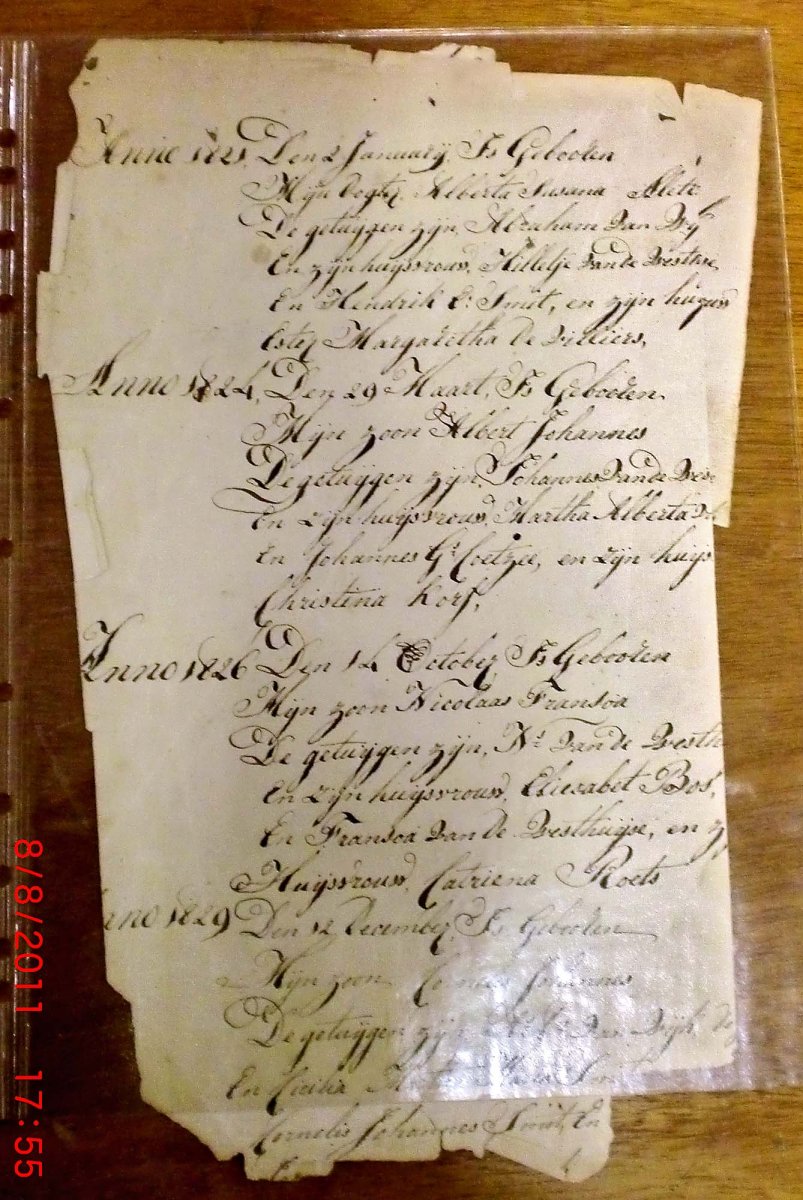 Anno 1821, Den 2 January, Is Gebooren
Mijn dogter Alberta Susana Alett
De getuijgen zijn, Abraham Van Wyk
En zijn huijsvrouw, Hilletje van de Westhuse
En Hendrik C: Smit, en zijn huijsv
Ester Margaretha de Villiers,
Anno 1824, Den 29 Maart, Is Gebooren
Mijn zoon Albert Johannes
De getuijgen zijn, Johannes van de Wes
En zijn huijsvrouw, Martha Alberta
En Johannes Gt Coetzee, en zijn huijs
Christina Korf,
Anno 1826 Den 14 October Is Gebooren
Mijn zoon Nicolaas Fransoa
De getuijgen zijn, Ns Van de Westh
En zijn huijsvrouw, Eliesabet Bos,
En Fransoa van de Westhuijse, en z
Huijsvrouw, Catriena Roets
nno 1829 Den 12 December, Is Gebooren
Mijn zoon Cornelis Johannes
De getuijgen zijn Van Wijk
En Cicilia Maria
Cornelis Johannes Smit, En
8/8/2011 17:55